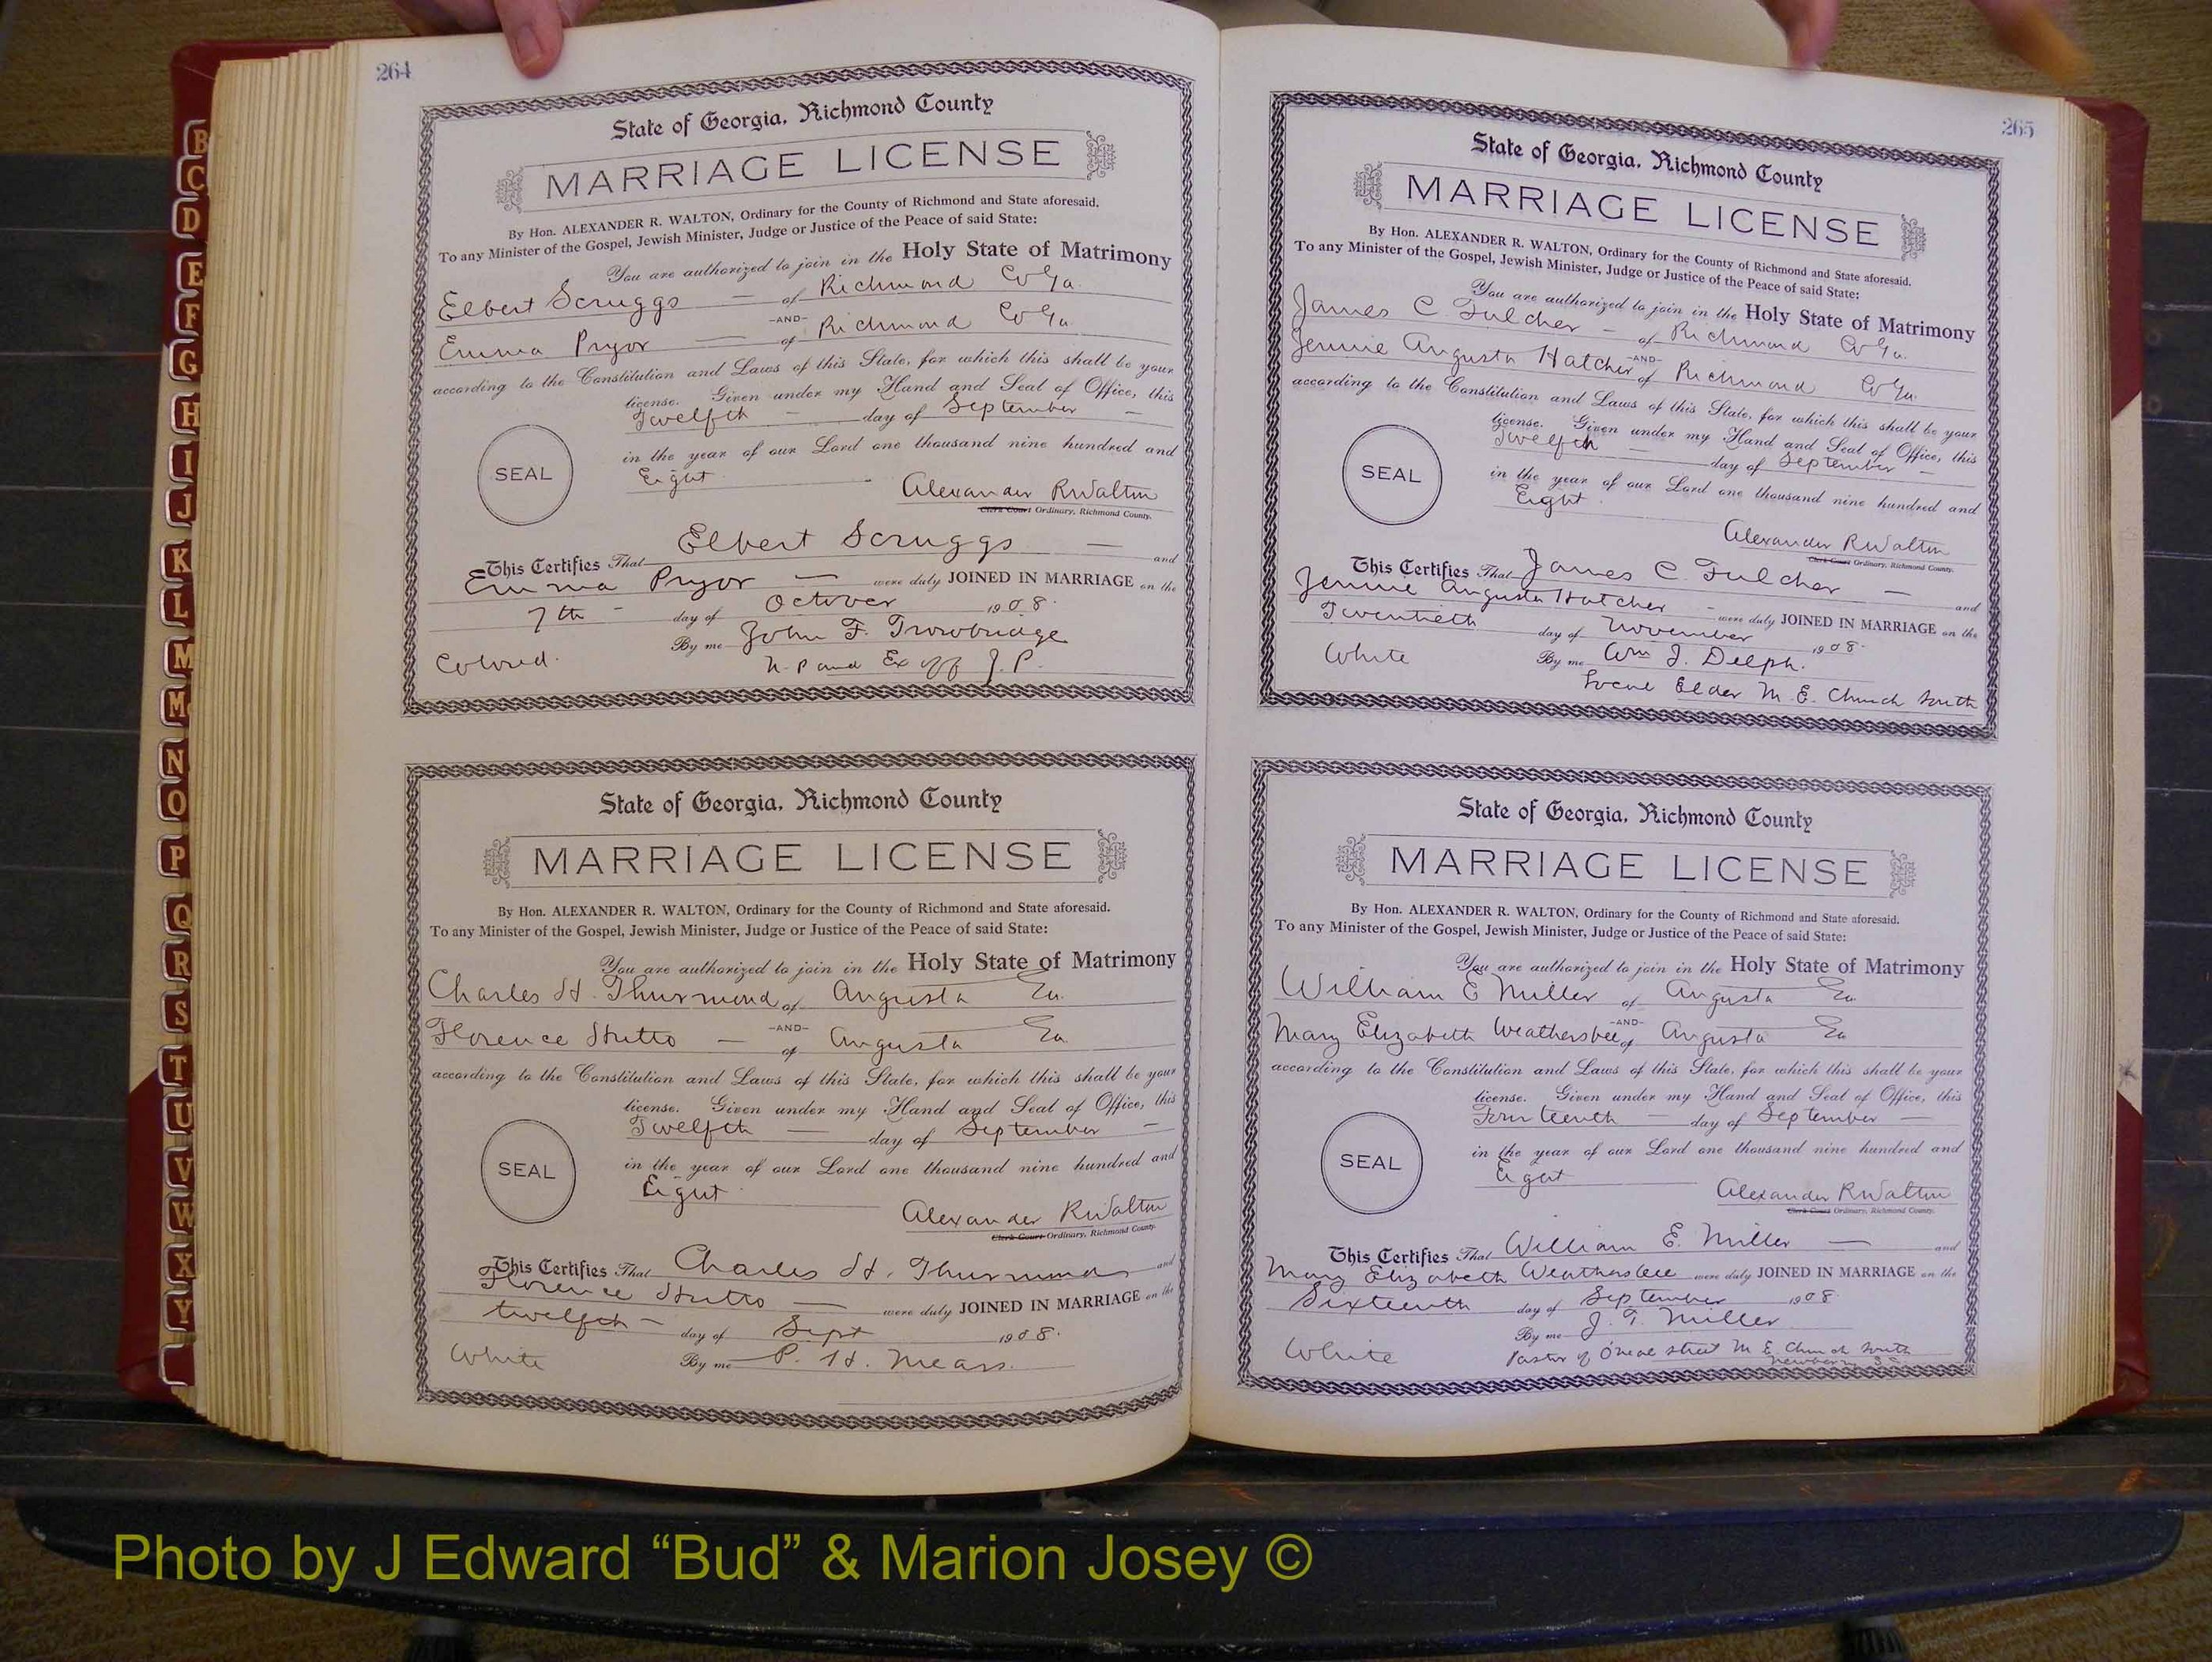 264
State of Georgia, Richmond County
MARRIAGE LICENSE
By Hon. ALEXANDER R. WALTON, Ordinary for the County of Richmond and State aforesaid.
To any Minister of the Gospel, Jewish Minister, Judge or Justice of the Peace of said State:
You are authorized to join in the Holy State of Matrimony
Elbert Scruggs — of Richmond Co Ga.
-AND-
Emma Pryor — of Richmond Co Ga.
according to the Constitution and Laws of this State, for which this shall be your
license. Given under my Hand and Seal of Office, this
Twelfth — day of September —
in the year of our Lord one thousand nine hundred and
SEAL
Eight
Alexander R Walton
Clerk Court Ordinary, Richmond County.
This Certifies That Elbert Scruggs — and
Emma Pryor — were duly JOINED IN MARRIAGE on the
7th - day of October 1908.
By me John F. Trowbridge
Colored. N. P and Ex off J. P.
State of Georgia, Richmond County
MARRIAGE LICENSE
By Hon. ALEXANDER R. WALTON, Ordinary for the County of Richmond and State aforesaid.
To any Minister of the Gospel, Jewish Minister, Judge or Justice of the Peace of said State:
You are authorized to join in the Holy State of Matrimony
Charles H. Thurmond of Augusta Ga.
-AND-
Florence Hutto — of Augusta Ga.
according to the Constitution and Laws of this State, for which this shall be your
license. Given under my Hand and Seal of Office, this
Twelfth — day of September —
in the year of our Lord one thousand nine hundred and
SEAL
Eight
Alexander R Walton
Clerk Court Ordinary, Richmond County.
This Certifies That Charles H. Thurmond and
Florence Hutto — were duly JOINED IN MARRIAGE on the
twelfth — day of Sept 1908.
White By me P. H. Mears.
265
State of Georgia, Richmond County
MARRIAGE LICENSE
By Hon. ALEXANDER R. WALTON, Ordinary for the County of Richmond and State aforesaid.
To any Minister of the Gospel, Jewish Minister, Judge or Justice of the Peace of said State:
You are authorized to join in the Holy State of Matrimony
James C. Fulcher — of Richmond Co Ga.
-AND-
Jennie Augusta Hatcher of Richmond Co Ga.
according to the Constitution and Laws of this State, for which this shall be your
license. Given under my Hand and Seal of Office, this
Twelfth — day of September —
in the year of our Lord one thousand nine hundred and
SEAL
Eight
Alexander R Walton
Clerk Court Ordinary, Richmond County.
This Certifies That James C. Fulcher — and
Jennie Augusta Hatcher — were duly JOINED IN MARRIAGE on the
Twentieth day of November 1908.
White By me Wm J. Delph.
Local Elder M. E. Church South
State of Georgia, Richmond County
MARRIAGE LICENSE
By Hon. ALEXANDER R. WALTON, Ordinary for the County of Richmond and State aforesaid.
To any Minister of the Gospel, Jewish Minister, Judge or Justice of the Peace of said State:
You are authorized to join in the Holy State of Matrimony
William E Miller of Augusta Ga
-AND-
Mary Elizabeth Weathersbee of Augusta Ga
according to the Constitution and Laws of this State, for which this shall be your
license. Given under my Hand and Seal of Office, this
Fourteenth — day of September —
in the year of our Lord one thousand nine hundred and
SEAL
Eight
Alexander R Walton
Clerk Court Ordinary, Richmond County.
This Certifies That William E. Miller — and
Mary Elizabeth Weathersbee were duly JOINED IN MARRIAGE on the
Sixteenth day of September 1908
By me J. T. Miller
White Pastor of O'neal street M E Church South
Newberry S C
B
C
D
E
F
G
H
I
J
K
L
M
Mc
N
O
P
Q
R
S
T
U
V
W
X
Y
Photo by J Edward “Bud” & Marion Josey ©